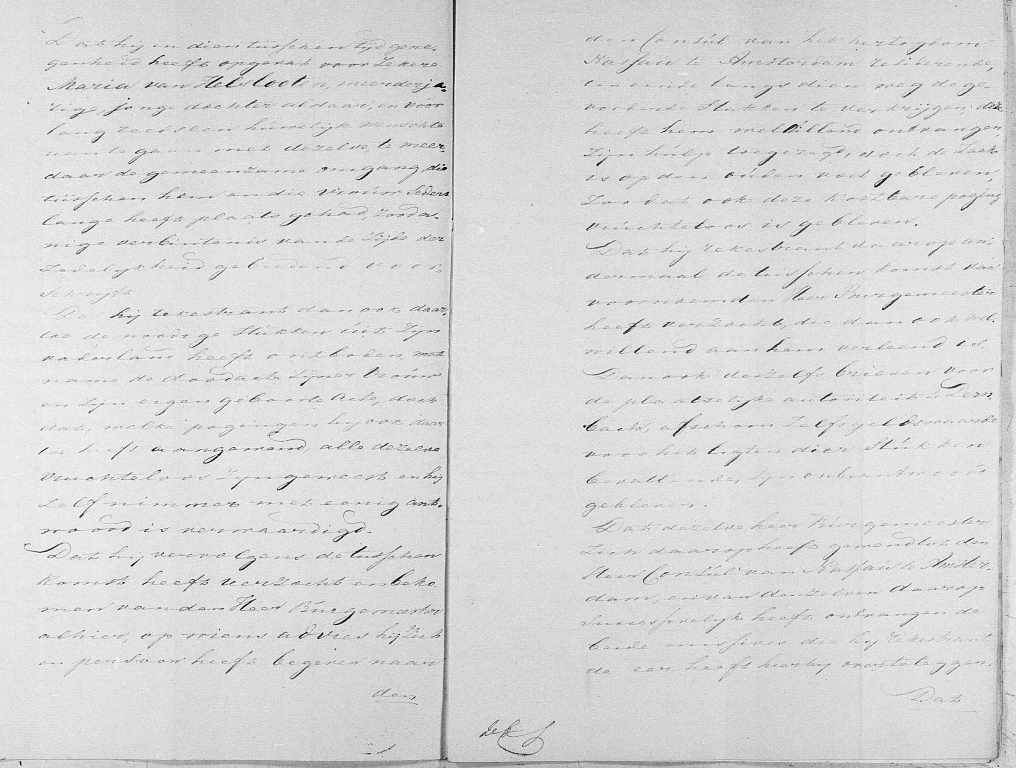 Dat hij in dien tusschen tyd gene,
genheid heeft opgevat voor zekere
Maria van Helslooten, meerderja-
rige jonge dochter aldaar, en voor
lang reeds een huwelijk wenschte
aan te gaan met dezelve, te meer
daar de gemeenzame omgang, die
tusschen hem en die vrouw sedert
lange heeft plaats gehad zoda-
nige verbintenis van de zijde der
zedelykheid gebiedend voor-
schrijft.
Dat hij rekestrant dan ook daar
toe de nodige stukken uit zijn
vaderland heeft ontboden, met
name de doodacte zijner vrouw
en zijn eigen geboorte acte, doch
dat, welke pogingen hij ook daar
toe heeft aangewend, alle dezelve
vruchteloos zijn geweest en hij
zelf nimmer met eenig ant-
woord is verwaardigd.
Dat hij vervolgens de tusschen
komst heeft verzocht en beko
men van den Heer Burgemeester
alhier, op wiens advies hij zich
in persoon heeft begeven naar
den
den Consul van het hertogdom
Nassau te Amsterdam resideerende,
ten einde langs dien weg de ge
vorderde stukken te verkrijgen, deze
heeft hem welwillend ontvangen,
zijn hulp toegezegd, doch de zaak
is op den ouden voet gebleven,
zoo dat ook deze kostbare poging
vruchteloos is gebleven.
Dat hij rekestrant daarop an-
dermaal de tusschen komst van
voornoemden Heer Burgemeester
heeft verzocht, die dan ook wel
willend aan hem verleend is.
Dan ook deszelfs brieven voor
de plaatselijke autoriteit te
bach, ofschoon zelfs geld
voor het ligten dier stukken
bevattende, zijn onbeantwoord
gebleven.
Dat dezelve heer Burgemeester
zich daarop heeft gewend tot den
Heer Consul van Nassau te Amster
dam, en van denzelven daarop
successivelijk heeft ontvangen de
beide missives die hij rekestrant
de eer heeft hierbij overteleggen.
Dat